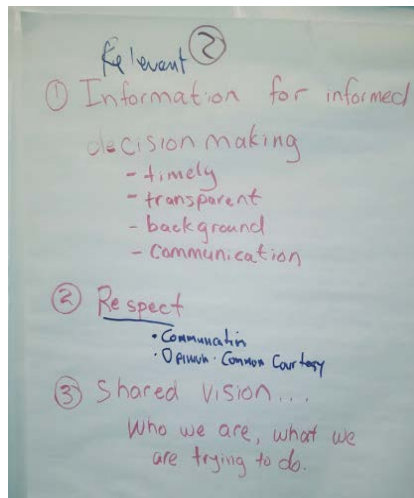 Relevant ②
① Information for informed
decision making
- timely
- transparent
- background
- communication
② Respect
• Communicatin
• Opinion · Common Courtesy
③ Shared Vision...
Who we are, what we
are trying to do.